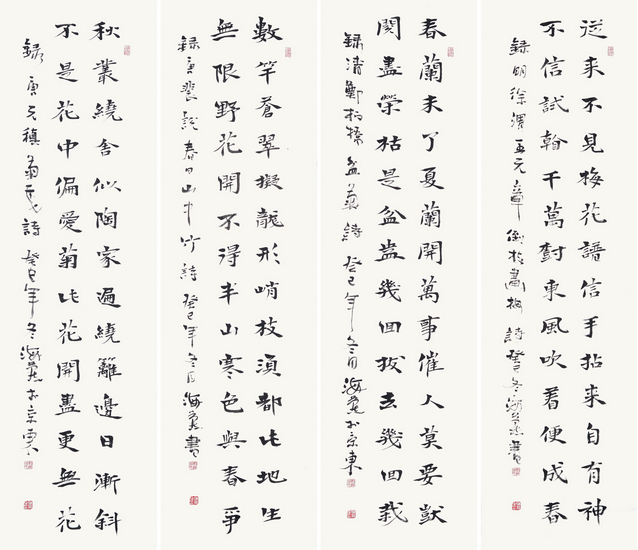 從来不見梅花譜信手拈来自有神
不信試看千萬樹東風吹着便成春
録明徐渭王元章倒枝畫梅詩癸巳冬海書
春蘭未了夏蘭開萬事催人莫要獃
閱盡榮枯是盆盎幾回拔去幾回栽
録清鄭板橋盆蘭詩癸巳年冬月海於京東
數竿蒼翠擬龍形峭拔須教此地生
無限野花開不得半山寒色與春爭
録唐裴說春日山中竹詩癸巳年冬月海書
秋叢繞舍似陶家遍繞籬邊日漸斜
不是花中偏愛菊此花開盡更無花
録唐元稹菊花詩癸巳年冬海於京東